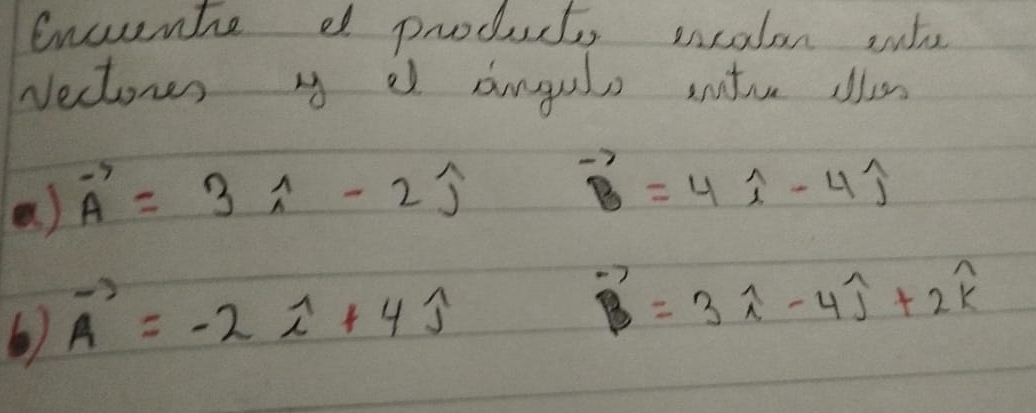 Encuentre el producto escalar entre
Vectores y el ángulo entre ellos
a) A⃗ = 3 î - 2 ĵ B⃗ = 4 î - 4 ĵ
b) A⃗ = -2 î + 4 ĵ B⃗ = 3 î - 4 ĵ + 2 k̂